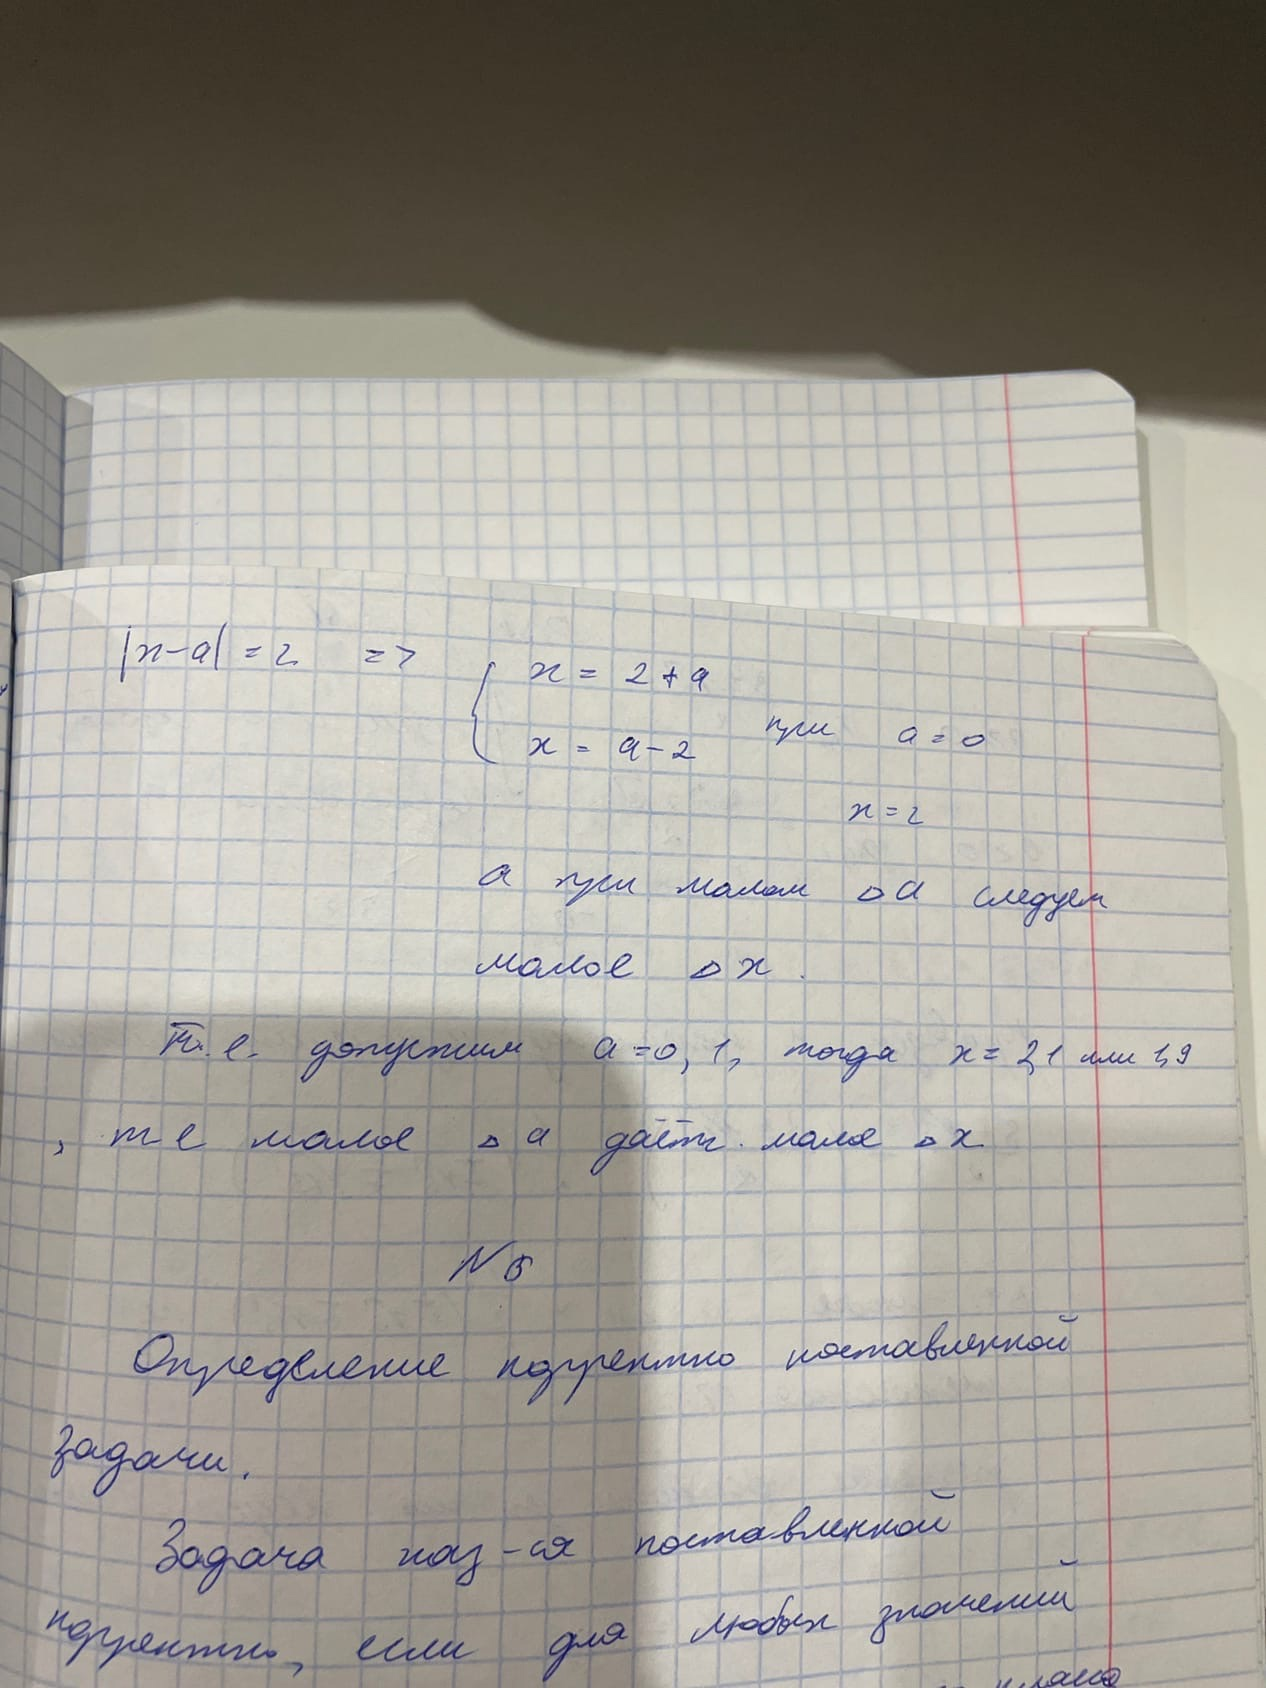 |x-a| = 2 => { x = 2 + a
x = a - 2 при a = 0
x = 2
а при малом △a следует
малое △x.
Т.е. допустим a = 0,1, тогда x = 2,1 или 1,9
, т е малое △a даёт малое △x
N 6
Определение корректно поставленной
задачи.
Задача наз-ся поставленной
корректно, если для любых значений